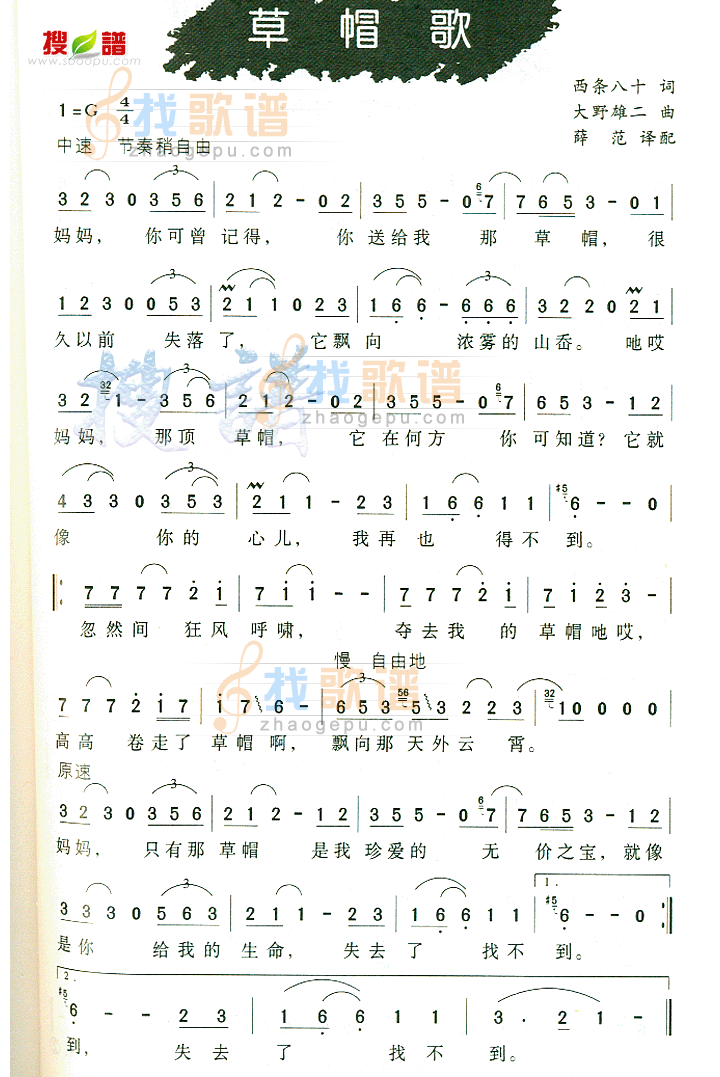 搜谱
www.sooopu.com
草帽歌
西条八十 词
1=G 4/4
大野雄二 曲
中速 节奏稍自由
薛 范 译配
找歌谱
zhaogepu.com
3 2 3 0 3 5 6 | 2 1 2 - 0 2 | 3 5 5 - 0 7 | 7 6 5 3 - 0 1 |
妈妈, 你可曾 记得, 你 送给我 那 草 帽, 很
1 2 3 0 0 5 3 | 2 1 1 0 2 3 | 1 6 6 - 6 6 6 | 3 2 2 0 2 1 |
久以前 失落了, 它飘向 浓雾的山岙。 吔哎
3 2 1 - 3 5 6 | 2 1 2 - 0 2 | 3 5 5 - 0 7 | 6 5 3 - 1 2 |
妈妈, 那顶 草帽, 它 在何方 你 可知道? 它就
4 3 3 0 3 5 3 | 2 1 1 - 2 3 | 1 6 6 1 1 | 6 - - 0 |
像 你的 心儿, 我再也 得不 到。
7 7 7 7 2 1 | 7 1 1 - - | 7 7 7 7 2 1 | 7 1 2 3 - |
忽然间 狂风 呼啸, 夺去我 的 草帽吔哎,
慢 自由地
7 7 7 2 1 7 | 1 7 6 - - | 6 5 3 5 3 2 2 3 | 1 0 0 0 0 |
高高 卷走了 草帽 啊, 飘向那 天外云 霄。
原速
3 2 3 0 3 5 6 | 2 1 2 - 1 2 | 3 5 5 - 0 7 | 7 6 5 3 - 1 2 |
妈妈, 只有那 草帽 是我 珍爱的 无 价之宝, 就像
1.
3 3 3 0 5 6 3 | 2 1 1 - 2 3 | 1 6 6 1 1 | 6 - - 0 :|
是你 给我的 生命, 失去了 找不 到。
2.
6 - - 2 3 | 1 6 6 1 1 | 3 · 2 1 | 1 - - 0 |
到, 失去 了 找不 到。